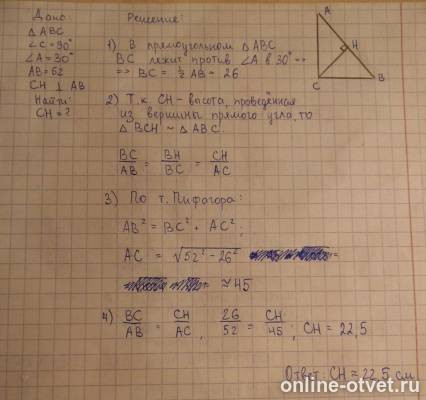 Дано:
△ABC
∠C=90°
∠A=30°
AB=52
CH ⊥ AB
Найти:
CH=?
Решение:
1) В прямоугольном △ABC
BC лежит против ∠A в 30° =>
=> BC = ½ AB = 26
2) Т.к. CH - высота, проведённая
из вершины прямого угла, то
△BCH ~ △ABC.
BC/AB = BH/BC = CH/AC
3) По т. Пифагора:
AB² = BC² + AC²;
AC = √52² - 26²
≈ 45
4) BC/AB = CH/AC, 26/52 = CH/45; CH = 22,5
Ответ: CH = 22,5 см
A
H
C
B
online-otvet.ru